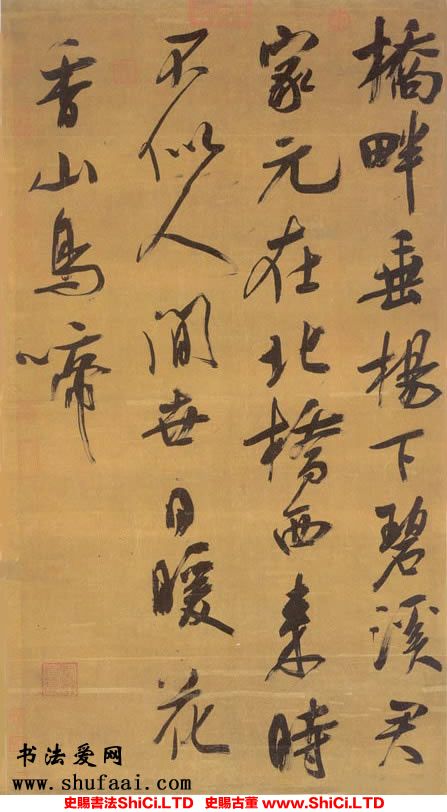 橋畔垂楊下碧溪君
家元在北橋西來時
不似人間世日暖花
香山鳥啼
书法爱网
www.shufaai.com
史賜書法ShiCi.LTD 史賜古董ShiCi.LTD